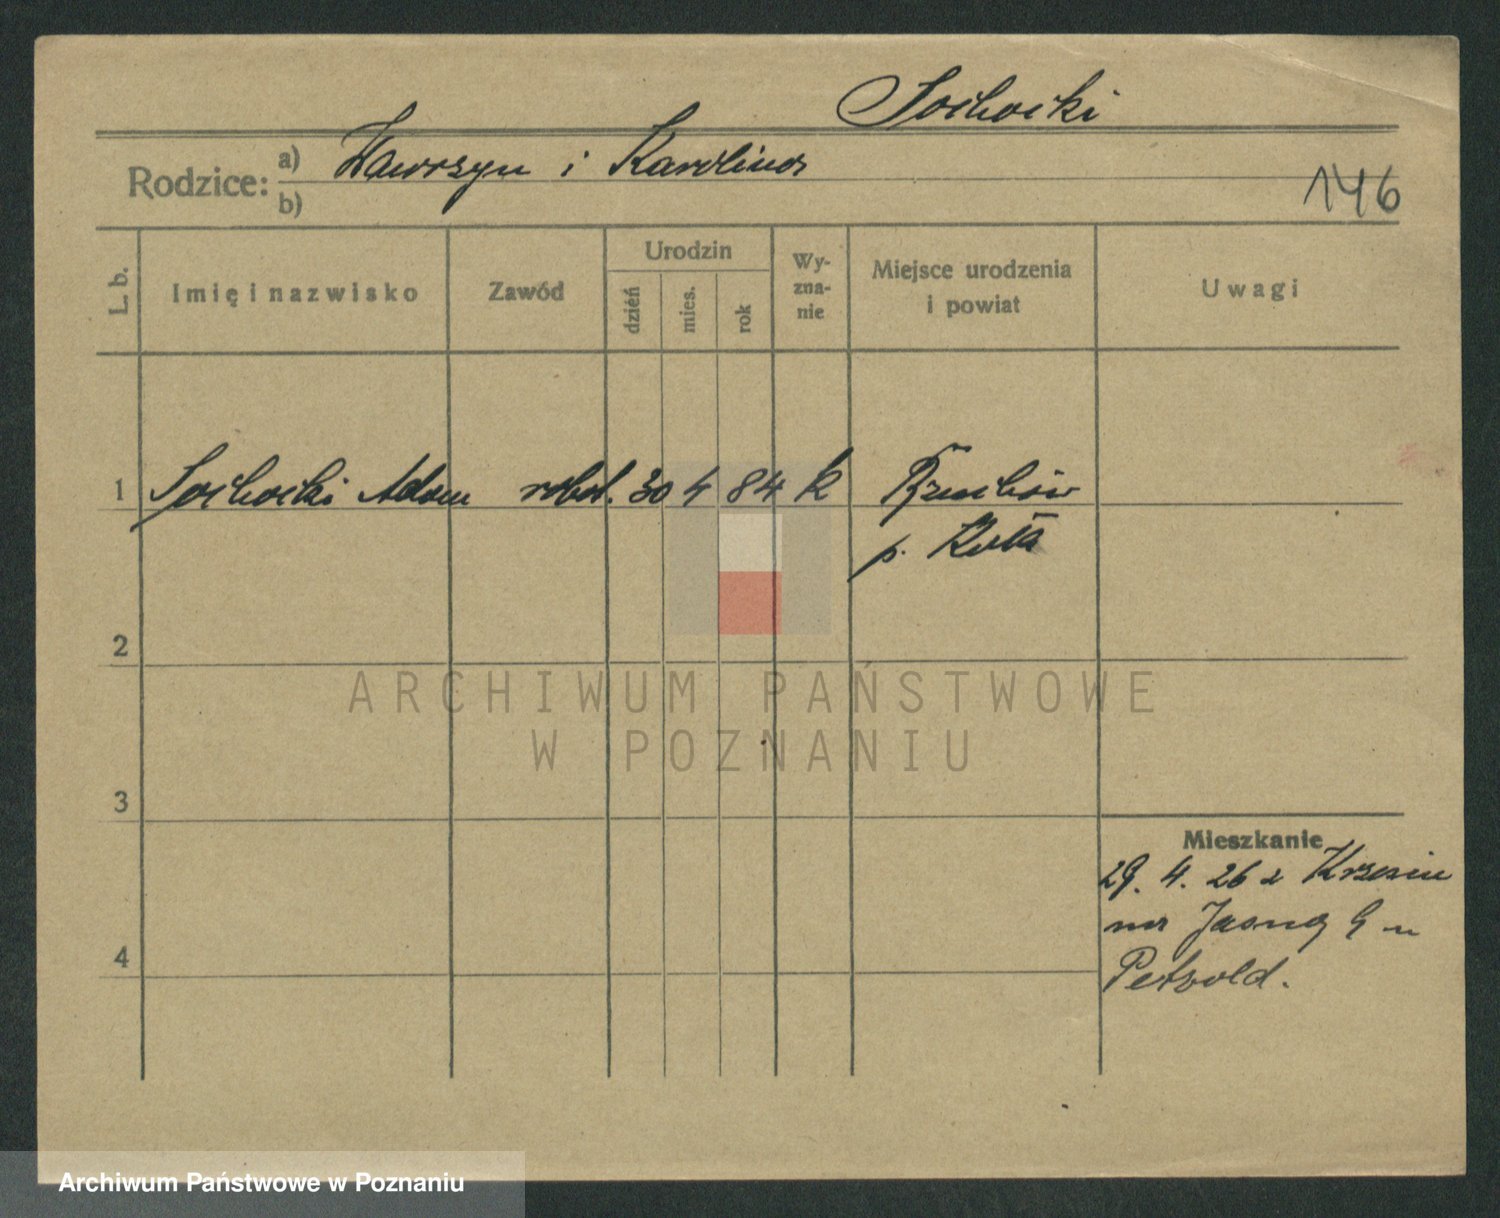 Sochocki
Rodzice: a) Wawrzyn i Karolina
b)
146
L. b.
Imię i nazwisko
Zawód
Urodzin
dzień
mies.
rok
Wy-
zna-
nie
Miejsce urodzenia
i powiat
Uwagi
1 Sochocki Adam robot. 30 4 84 k
p.
2
3
4
Mieszkanie
29. 4. 26 z
na Jasną 9 u
Petzold.
ARCHIWUM PAŃSTWOWE
W POZNANIU
Archiwum Państwowe w Poznaniu